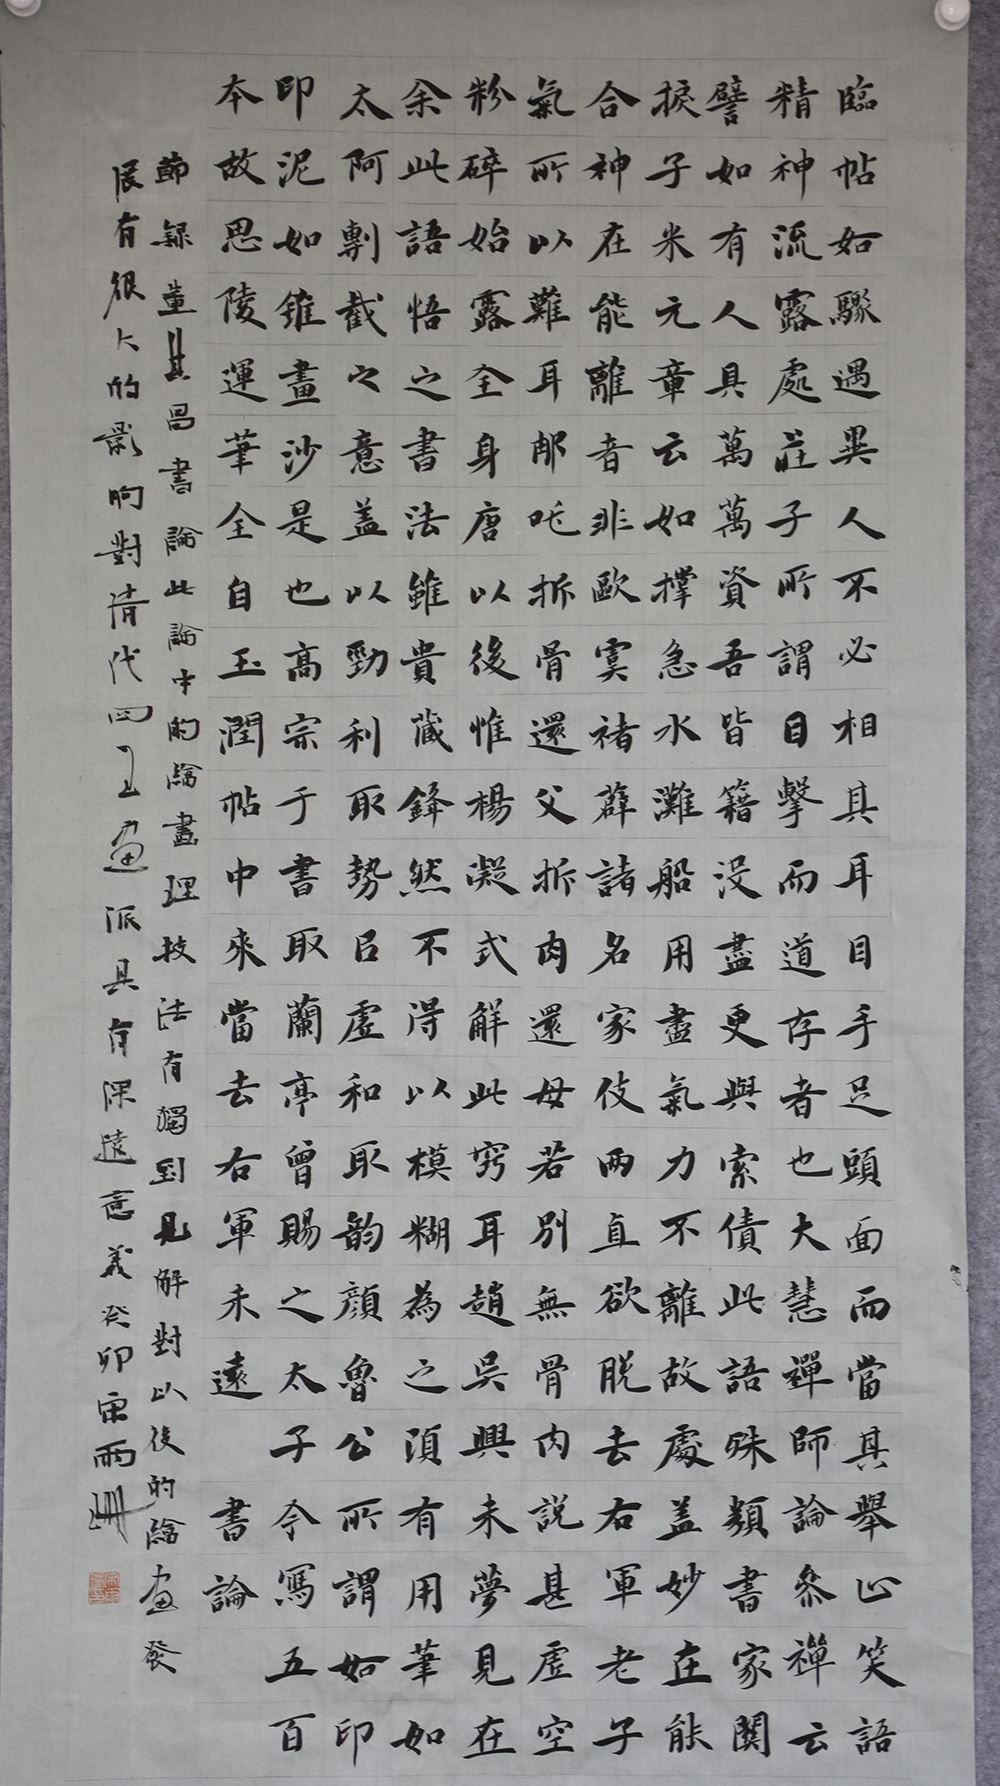 臨帖如驟遇異人不必相其耳目手足頭面而當其舉止笑語
精神流露處莊子所謂目擊而道存者也大慧禪師論參禪云
譬如有人具萬萬資吾皆籍沒盡更與索債此語殊類書家關
捩子米元章云如撑急水灘船用盡氣力不離故處蓋妙在能
合神在能離者非歐虞褚薛諸名家伎兩直欲脱去右軍老子
氣所以難耳那吒拆骨還父拆肉還母若別無骨肉説甚虛空
粉碎始露全身唐以後惟楊凝式解此竅耳趙吳興未夢見在
余此語悟之書法雖貴藏鋒然不得以模糊為之湏有用筆如
太阿剸截之意蓋以勁利取勢以虛和取韵顔魯公所謂如印
印泥如錐畫沙是也高宗于書取蘭亭曾賜之太子令寫五百
本故思陵運筆全自玉潤帖中來當去右軍未遠 書論
節録董其昌書論此論中的論畫理技法有獨到見解對以後的論画發
展有很大的影响對清代四王画派具有深遠意義癸卯宋雨